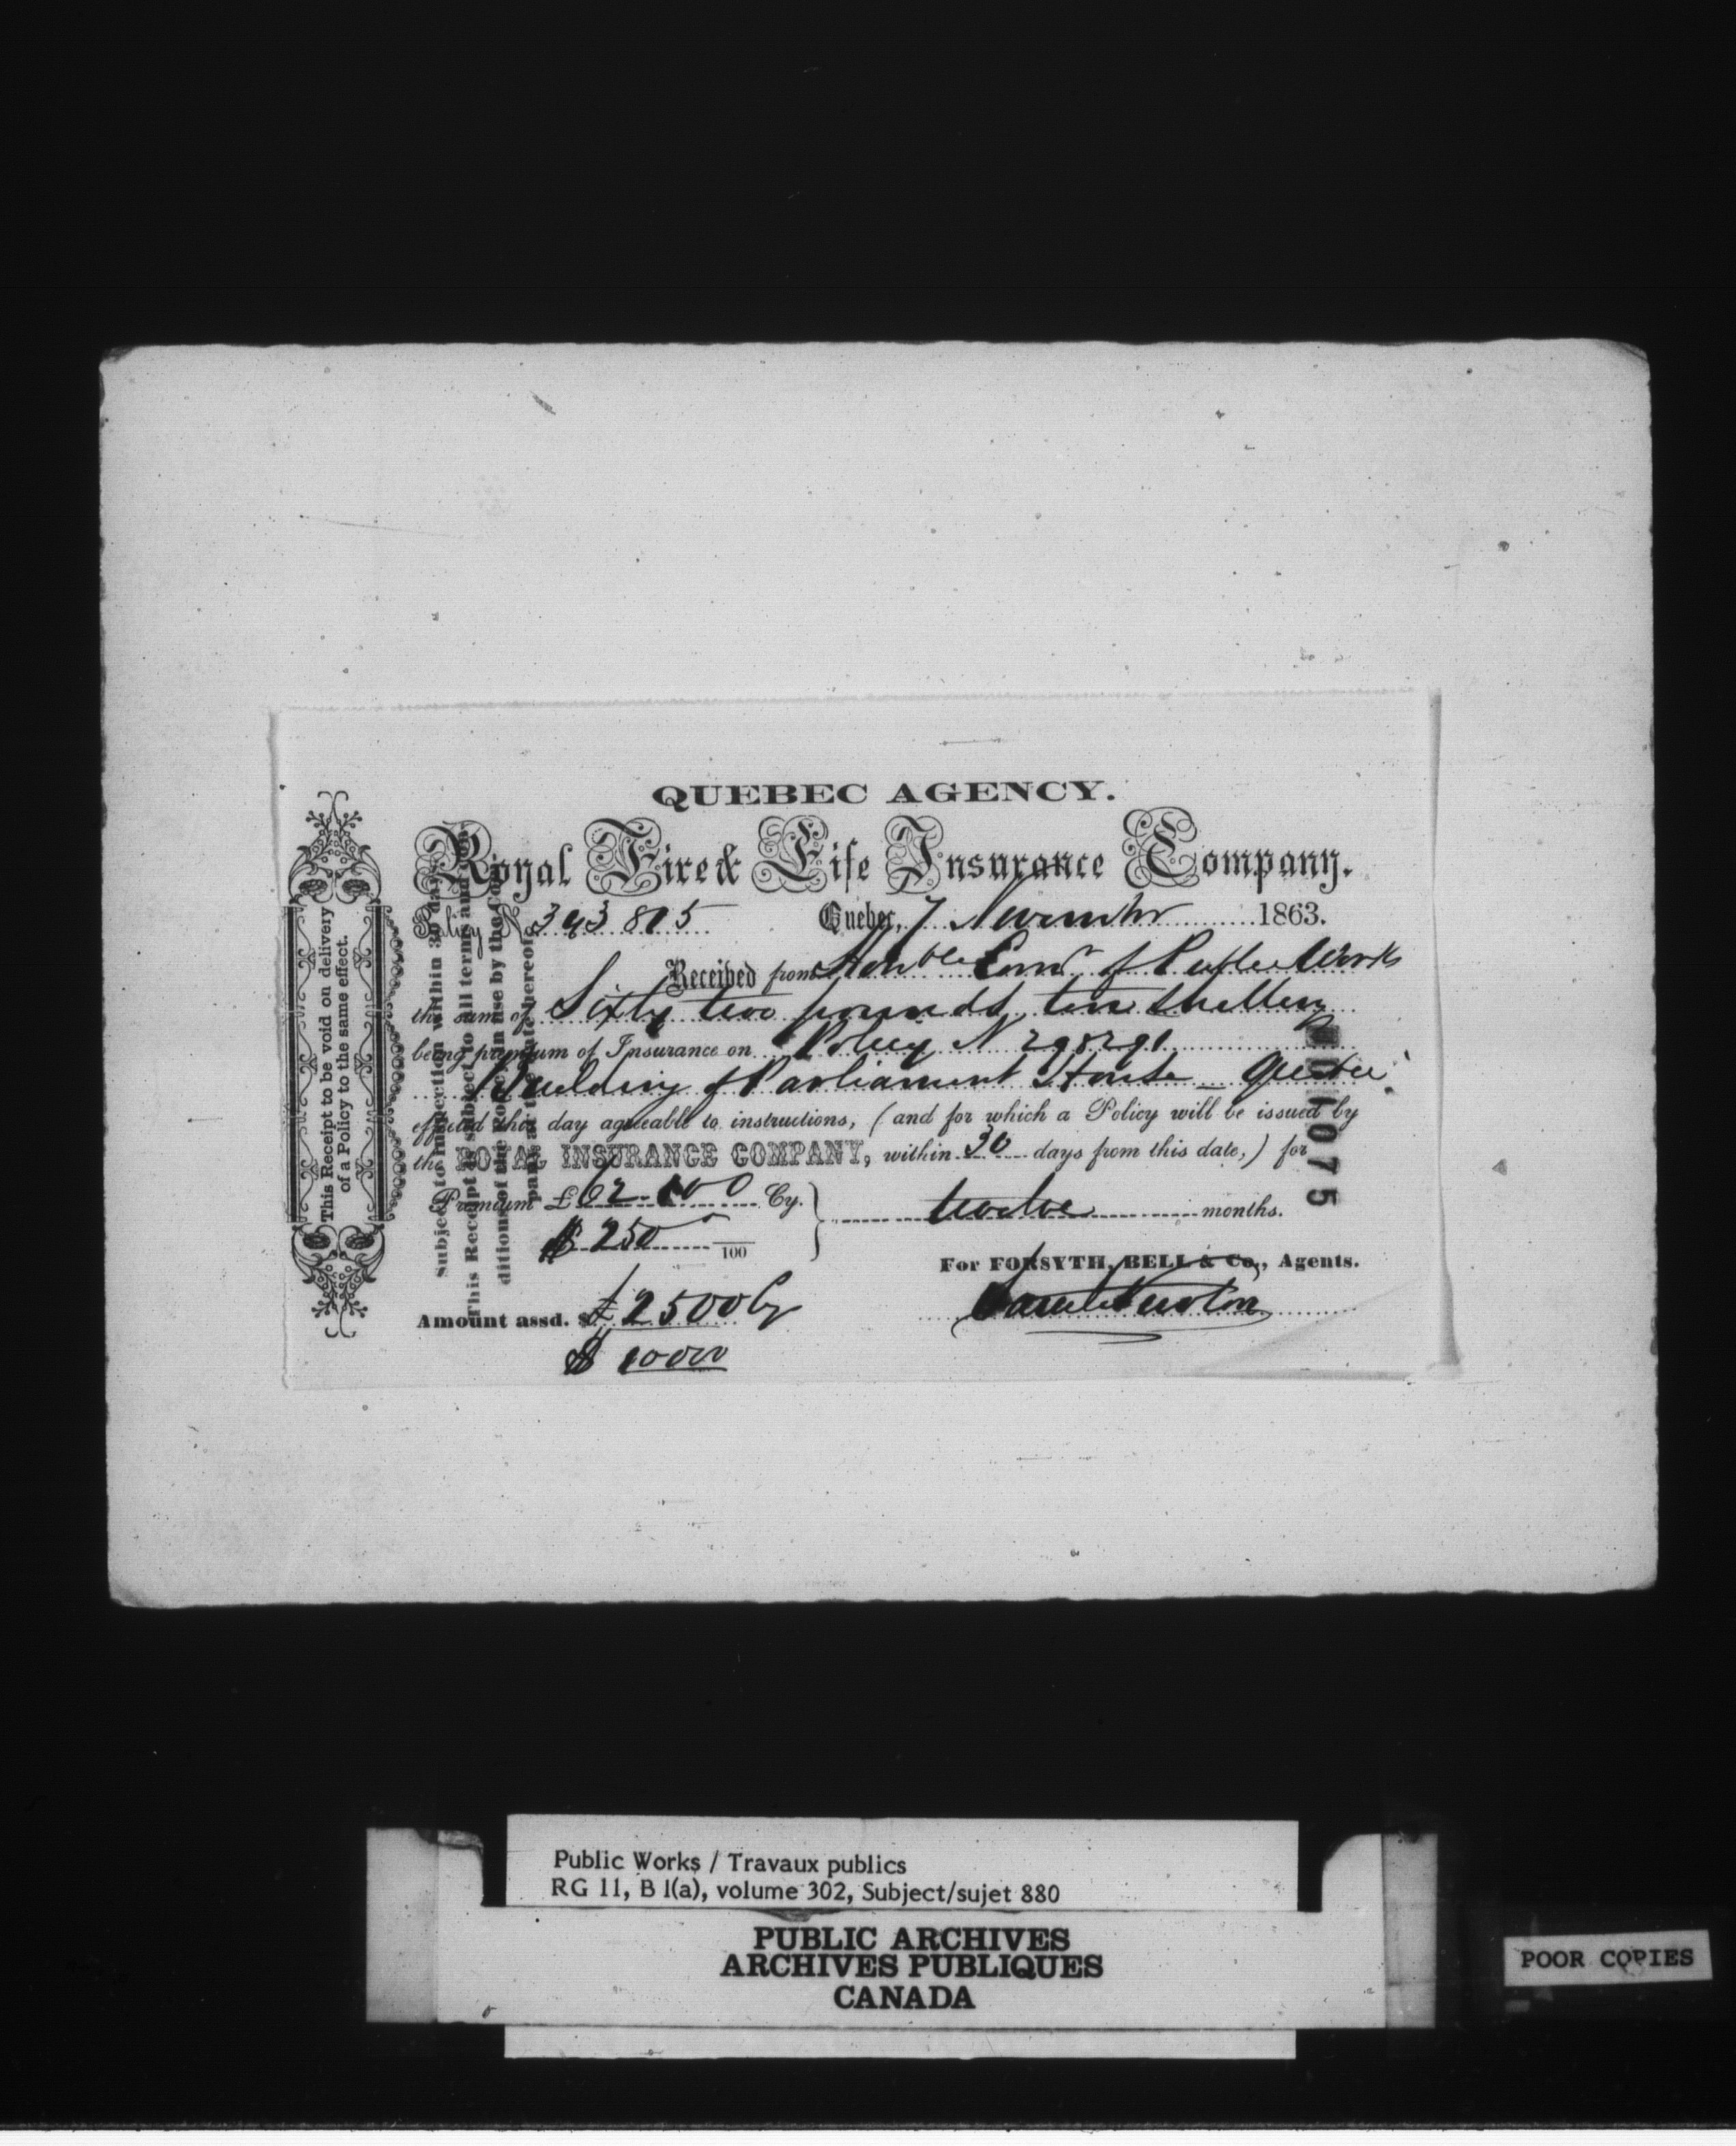 QUEBEC AGENCY.
Royal Fire & Life Insurance Company.
Policy No 343815 Quebec, 7 November 1863.
Received from Honble Comr of Public Works
the sum of Sixty two pounds ten shillings
being premium of Insurance on Policy N 298291
Building of Parliament House – Quebec
effected this day agreeable to instructions, (and for which a Policy will be issued by
the ROYAL INSURANCE COMPANY, within 30 days from this date,) for
Premium £ 62-10 0 Cy.
$ 250 100
twelve months.
For FORSYTH, BELL & Co., Agents.
Amount assd. $ £2500 Cy
$ 10000
This Receipt to be void on delivery
of a Policy to the same effect.
subject to inspection within 30 days
This Receipt is subject to all terms and con-
ditions of the Policies in use by the Com-
pany at the date hereof.
1075
Public Works / Travaux publics
RG 11, B 1(a), volume 302, Subject/sujet 880
PUBLIC ARCHIVES
ARCHIVES PUBLIQUES
CANADA
POOR COPIES